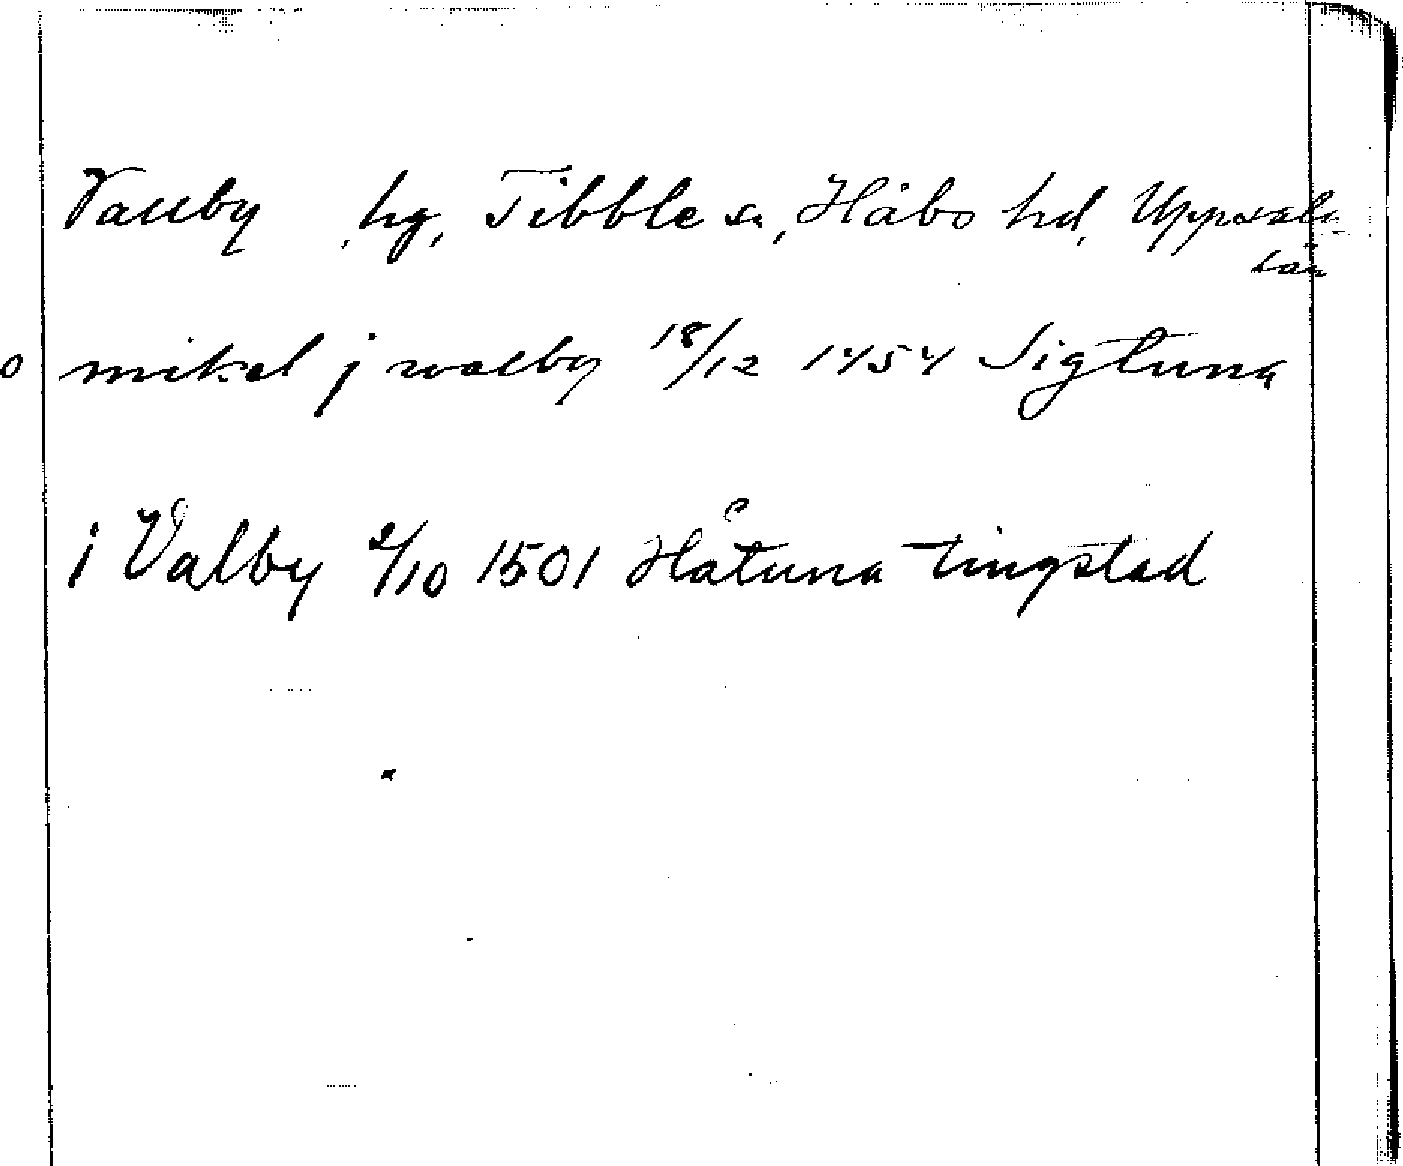 Vallby, hg, Tibble sn, Håbo hd, Uppsala
län
o mikel j walby 18/12 1454 Sigtuna
i Valby 2/10 1501 Håtuna tingstad